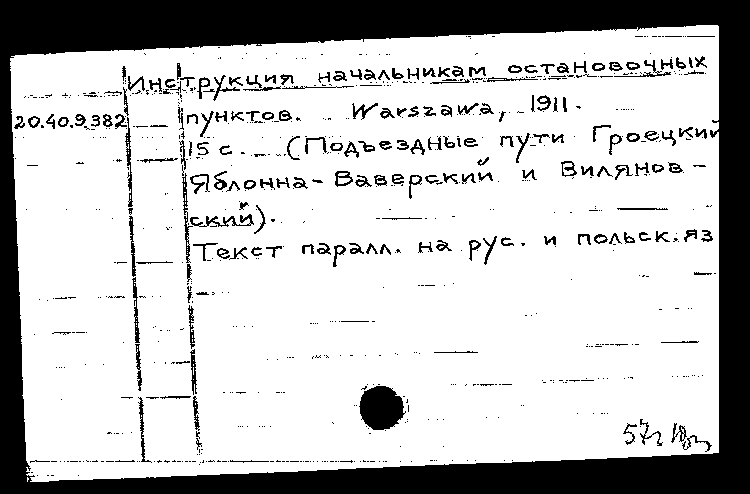 Инструкция начальникам остановочных
20.40.9.382 пунктов. Warszawa, 1911.
15 с. (Подъездные пути Гроецкий
Яблонна-Ваверский и Вилянов-
ский).
Текст паралл. на рус. и польск.яз
57г